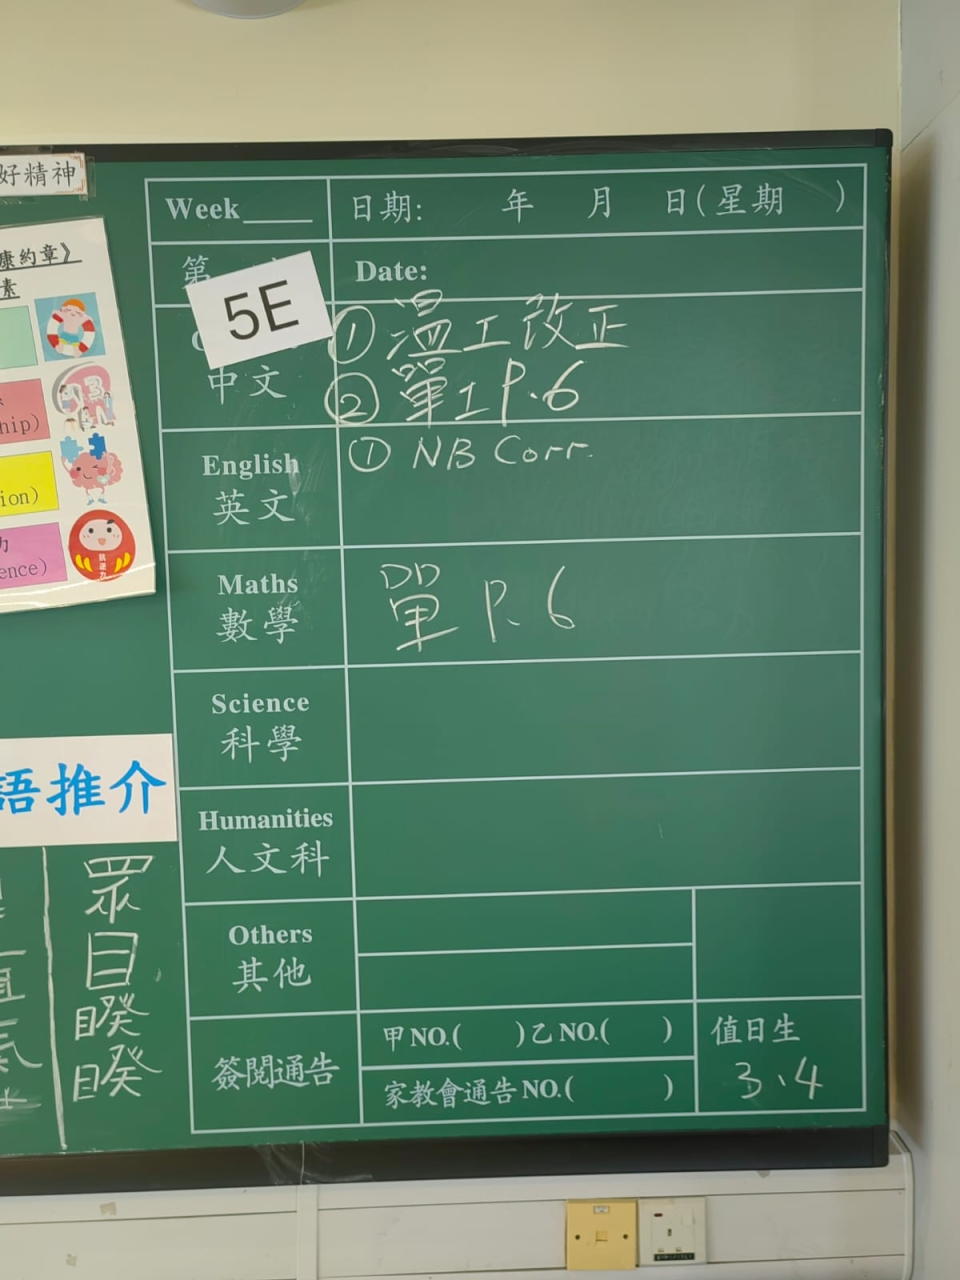 好精神
康約章》
素
hip)
ion)
力
ence)
抗逆力
語推介
眾目睽睽
Week____ 日期: 年 月 日(星期 )
第
5E
Date:
中文
① 溫工改正
② 單工 P.6
English
英文
① NB Corr.
Maths
數學
單 P.6
Science
科學
Humanities
人文科
Others
其他
簽閱通告
甲NO.( )乙NO.( )
家教會通告NO.( )
值日生
3、4